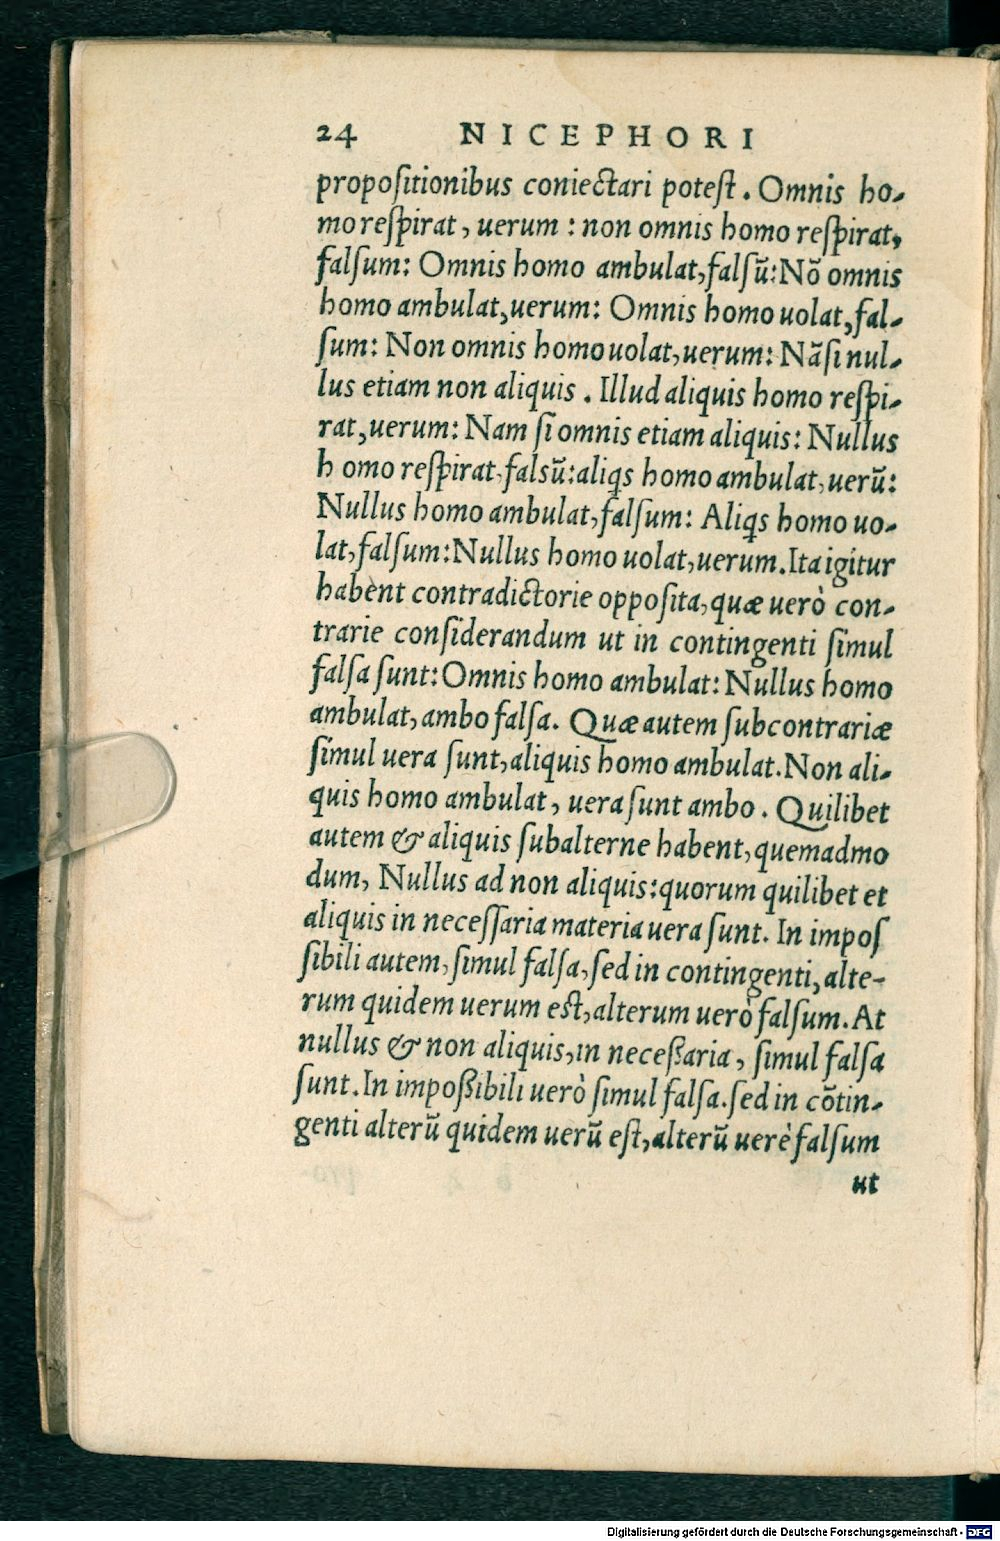 24 NICEPHORI
propoſitionibus coniectari poteſt. Omnis ho-
mo reſpirat, uerum: non omnis homo reſpirat,
falſum: Omnis homo ambulat, falſū: Nō omnis
homo ambulat, uerum: Omnis homo uolat, fal-
ſum: Non omnis homo uolat, uerum: Nā ſi nul-
lus etiam non aliquis. Illud aliquis homo reſpi-
rat, uerum: Nam ſi omnis etiam aliquis: Nullus
h omo reſpirat, falsū: aliqs homo ambulat, uerū:
Nullus homo ambulat, falſum: Aliqs homo uo-
lat, falſum: Nullus homo uolat, uerum. Ita igitur
habent contradictorie oppoſita, quæ uerò con-
trarie conſiderandum ut in contingenti ſimul
falſa ſunt: Omnis homo ambulat: Nullus homo
ambulat, ambo falſa. Quæ autem ſubcontrariæ
ſimul uera ſunt, aliquis homo ambulat. Non ali-
quis homo ambulat, uera ſunt ambo. Quilibet
autem & aliquis ſubalterne habent, quemadmo
dum, Nullus ad non aliquis: quorum quilibet et
aliquis in neceſſaria materia uera ſunt. In impoſ
ſibili autem, ſimul falſa, ſed in contingenti, alte-
rum quidem uerum eſt, alterum uerò falſum. At
nullus & non aliquis, in neceßaria, ſimul falſa
ſunt. In impoßibili uerò ſimul falſa. ſed in cōtin-
genti alterū quidem uerū eſt, alterū uerè falſum
ut
Digitalisierung gefördert durch die Deutsche Forschungsgemeinschaft - DFG